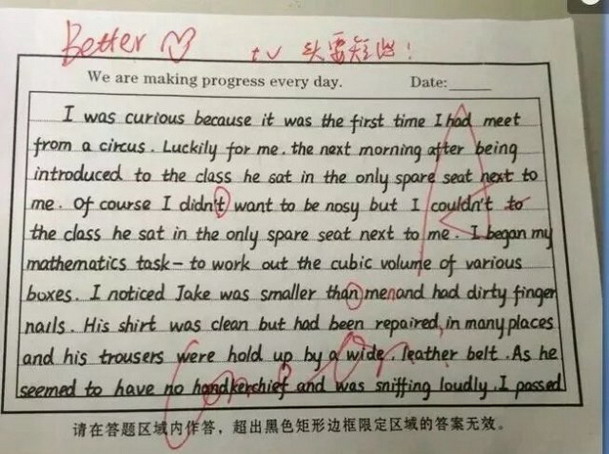 Better
tv 头要短些!
We are making progress every day. Date:
I was curious because it was the first time I had meet
from a circus. Luckily for me, the next morning after being
introduced to the class he sat in the only spare seat next to
me. Of course I didn't want to be nosy but I couldn't to
the class he sat in the only spare seat next to me. I began my
mathematics task - to work out the cubic volume of various
boxes. I noticed Jake was smaller than me and had dirty finger
nails. His shirt was clean but had been repaired in many places
and his trousers were hold up by a wide, leather belt. As he
seemed to have no handkerchief and was sniffing loudly. I passed
请在答题区域内作答，超出黑色矩形边框限定区域的答案无效。